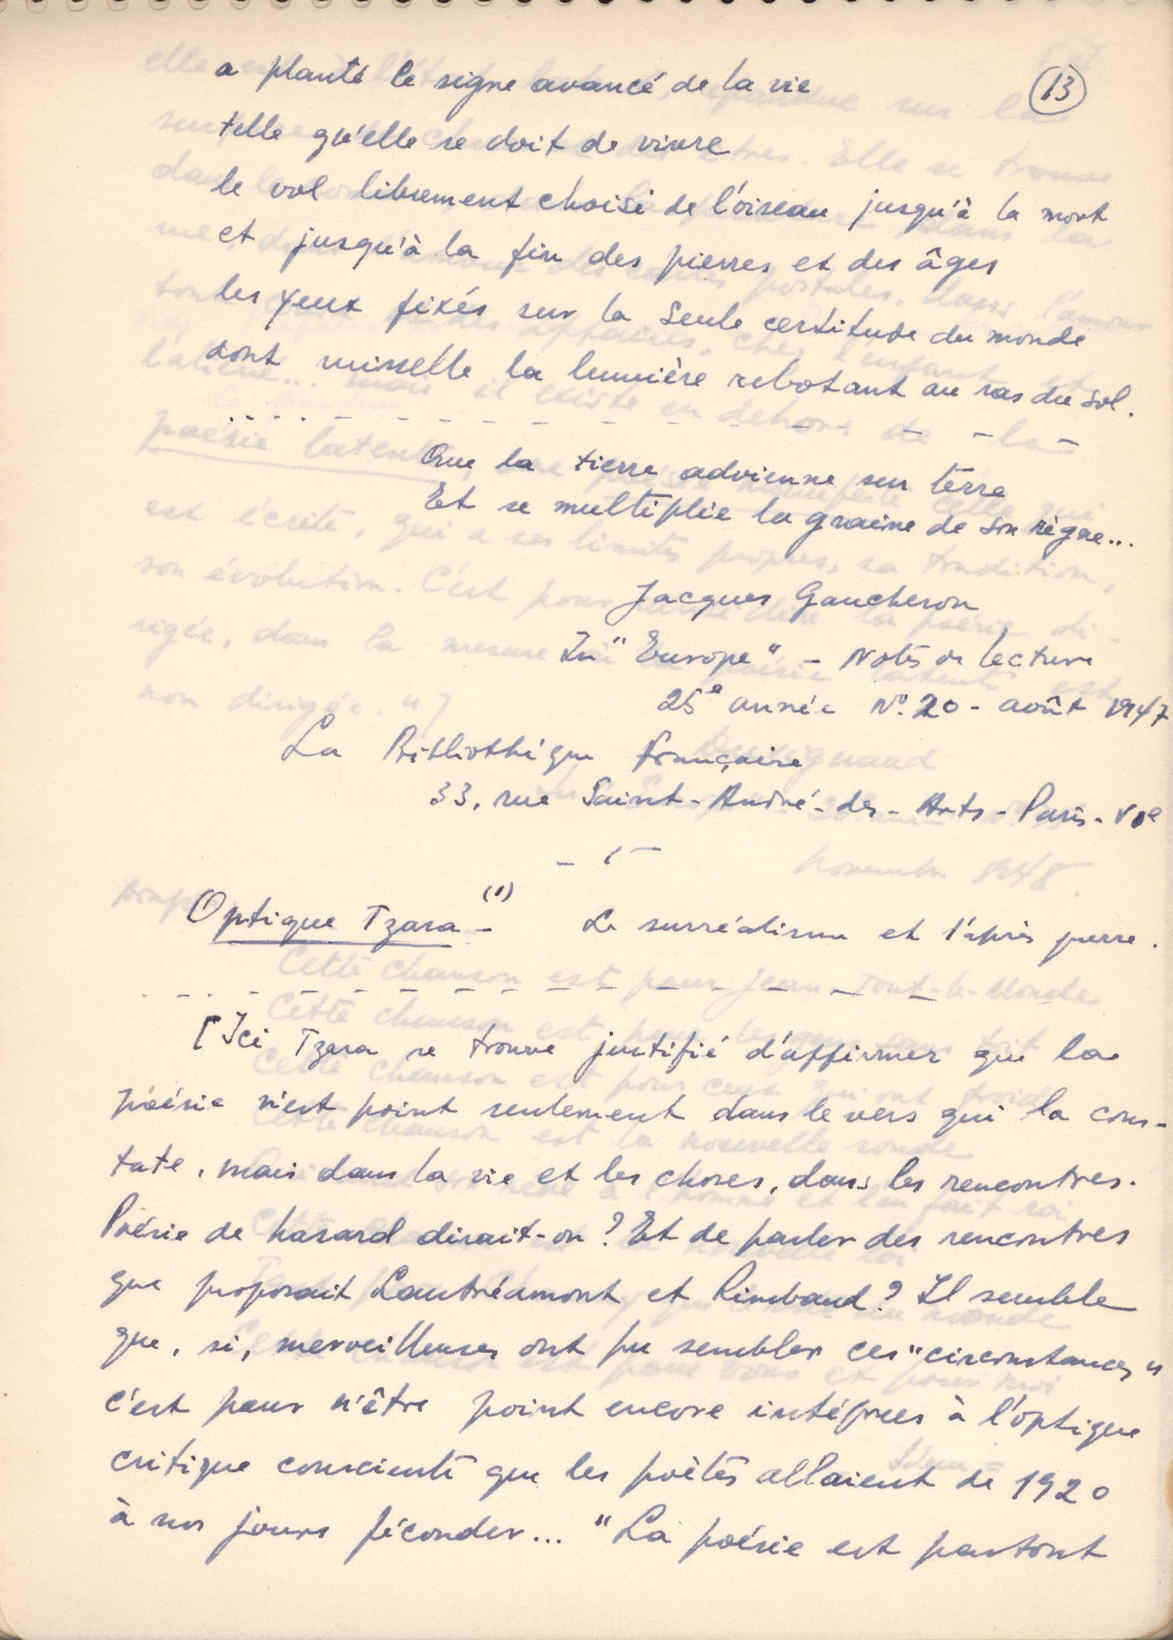 (13)
a planté le signe avancé de la vie
telle qu'elle se doit de vivre
le vol librement choisi de l'oiseau jusqu'à la mort
et jusqu'à la fin des pierres et des âges
les yeux fixés sur la seule certitude du monde
dont ruisselle la lumière ricochant au ras du sol.
Que la tierre advienne sur terre
Et se multiplie la graine de son règne...
Jacques Gaucheron
In "Europe" - Notes de lecture
25e année No. 20 - août 1947
La Bibliothèque française
33, rue Saint-André-des-Arts - Paris - VIe
Optique Tzara - (1) Le surréalisme et l'après guerre.
[Ici Tzara se trouve justifié d'affirmer que la
poésie n'est point seulement dans le vers qui la cons-
tate, mais dans la vie et les choses, dans les rencontres.
Poésie de hasard dirait-on ? Et de parler des rencontres
que proposait Lautréamont et Rimbaud ? Il semble
que, si, merveilleuses ont pu sembler ces "circonstances"
c'est pour n'être point encore intégrées à l'optique
critique consciente que les poètes allaient de 1920
à nos jours féconder... "La poésie est partout